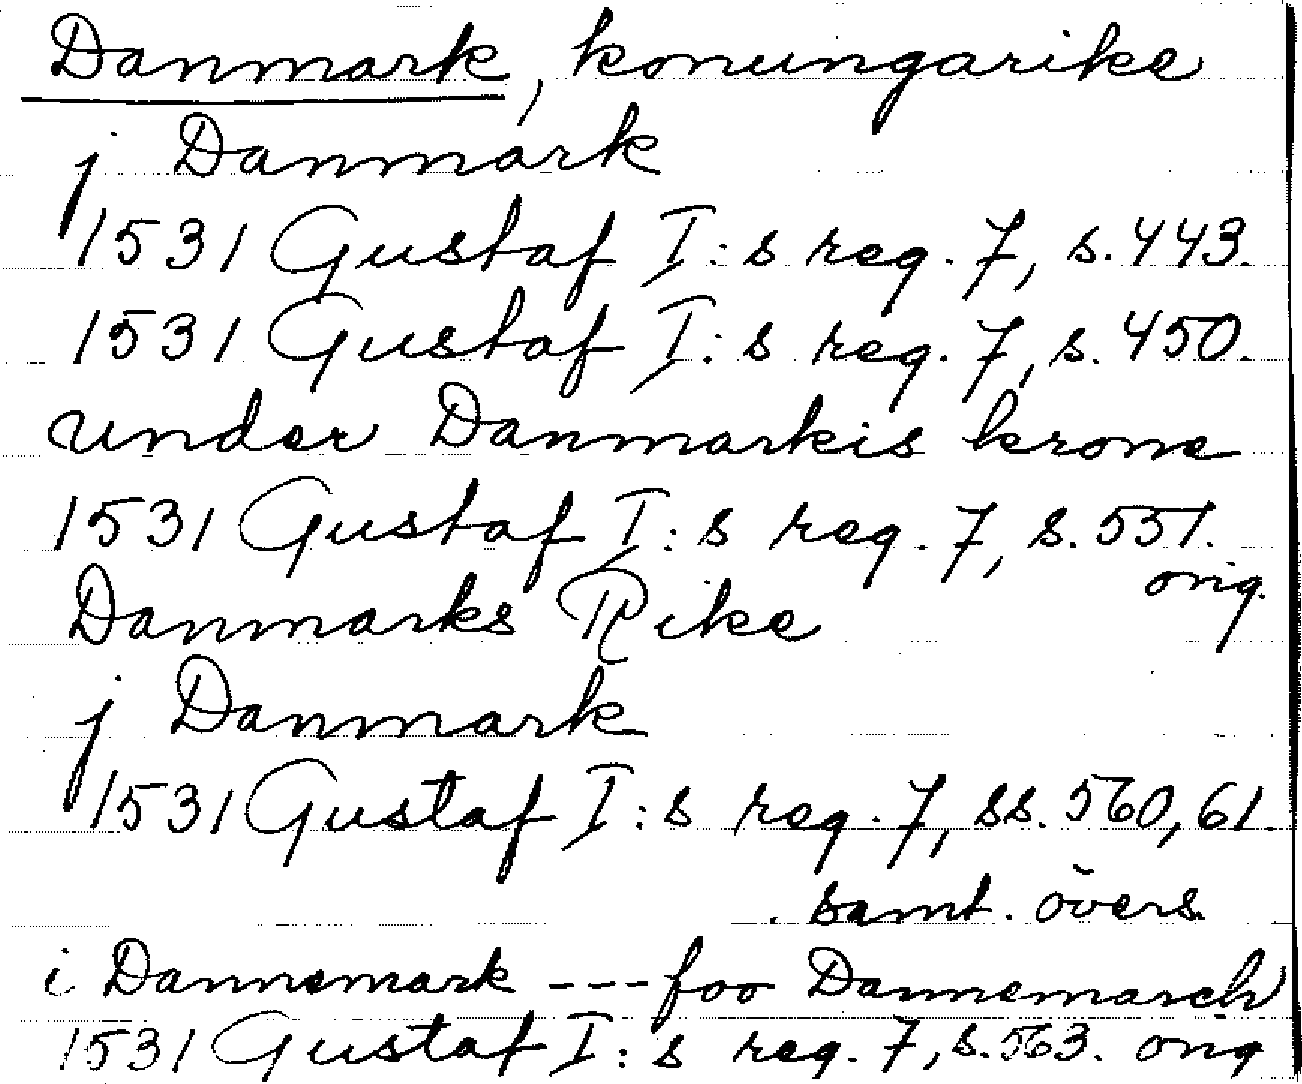 Danmark, konungarike
j Danmark
1531 Gustaf I:s reg. 7, s. 443.
1531 Gustaf I:s reg. 7, s. 450.
under Danmarkis krone
1531 Gustaf I:s reg. 7, s. 551.
orig.
Danmarks Rike
j Danmark
1531 Gustaf I:s reg. 7, ss. 560, 61.
samt. övers.
i Dannemark --- foo Dannemarch
1531 Gustaf I:s reg. 7, s. 563. orig